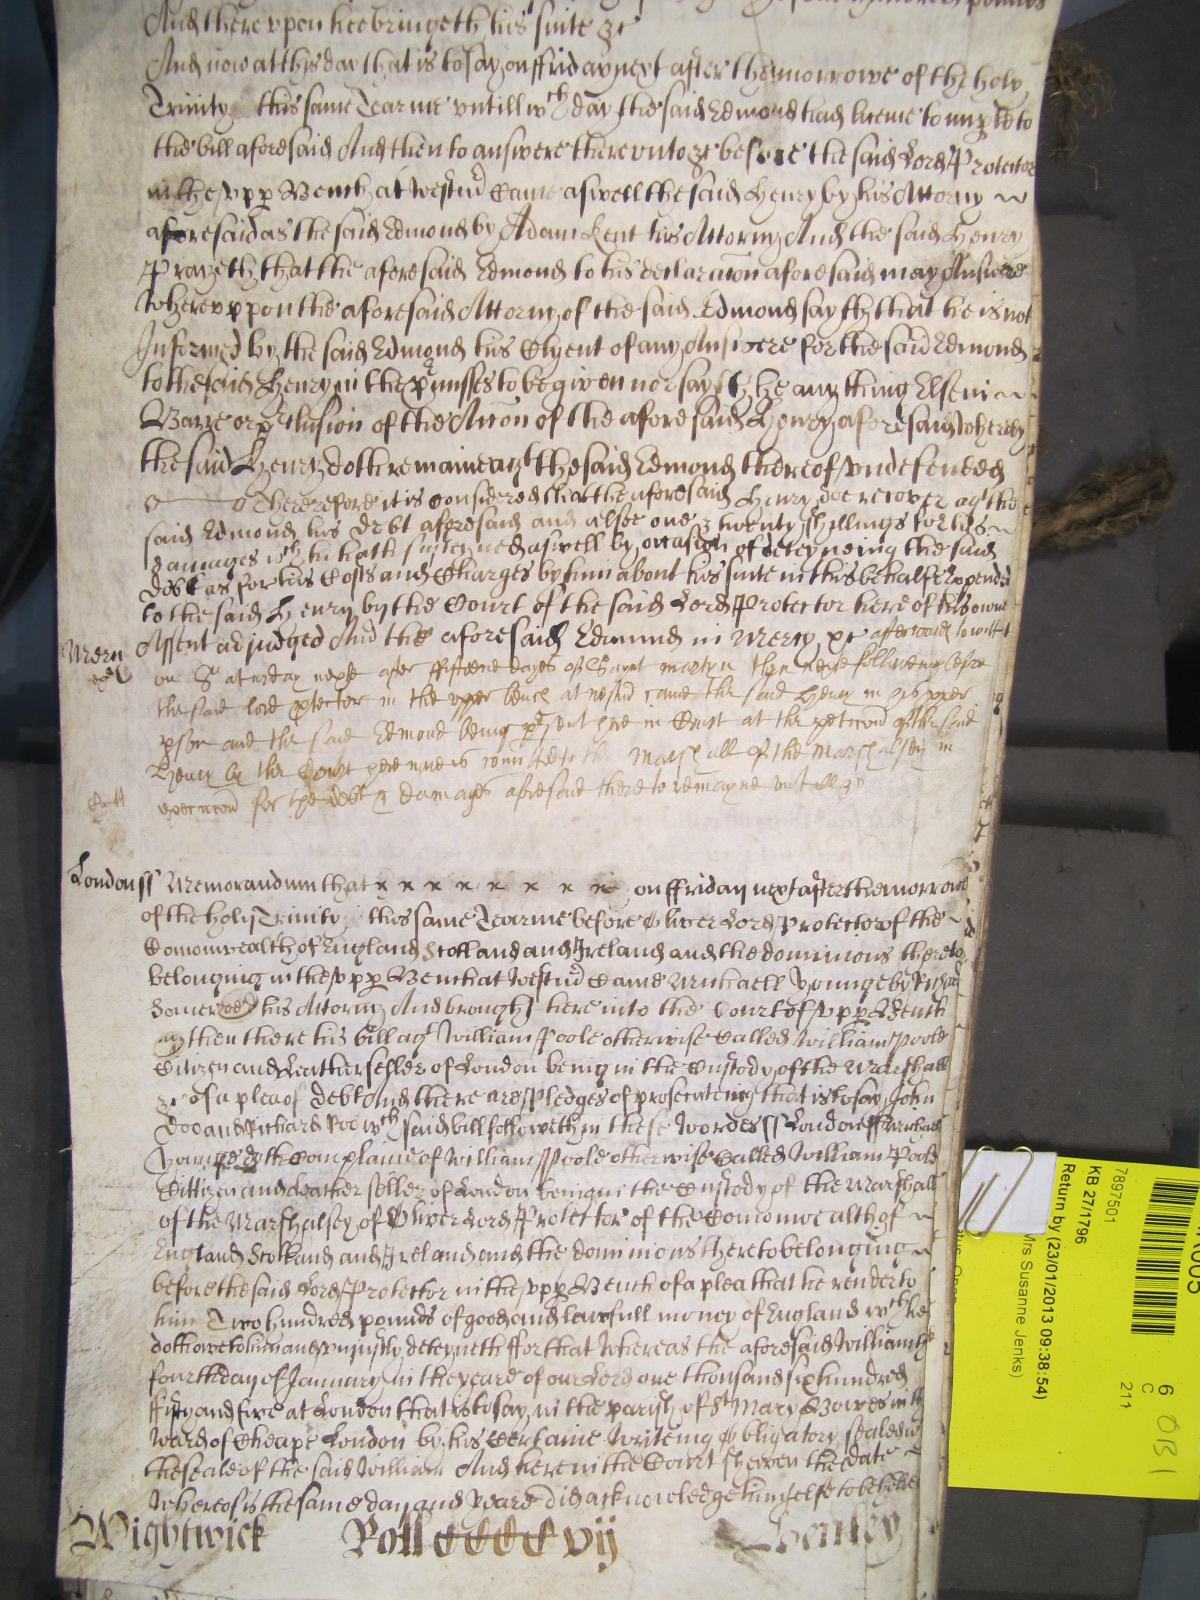 And there upon hee bringeth his suite &c
And now at this day that is to say on ffriday next after the morrowe of the holy
Trinity this same Tearme untill wch day the said Edmond had licence to imple to
the bill aforesaid And then to answere thereunto &c before the said Lord Protector
in the upp Bench at Westmr Came aswell the said Henry by his Attorny
aforesaid as the said Edmond by Adam Kent his Attorny And the said Henry
Prayeth that the aforesaid Edmond to his declaracon aforesaid may Answere
Whereuppon the aforesaid Attorny of the said Edmond sayth that he is not
Informed by the said Edmond his Clyent of any Answere for the said Edmond
to the said Henry in the pmisses to be given nor sayth he any thing Else in
Barre or pclusion of the Accon of the aforesaid Henry aforesaid Whereby
the said Henry doth remaine agt the said Edmond thereof undefended
Therefore it is Considered that the aforesaid Henry doe recover agt the
said Edmond his Debt aforesaid and alsoe one & twenty shillings for his
damages wch hee hath susteyned aswell by occasion of deteyneing the said
Debt as for his Costs and Charges by him about his suite in this behalfe Expended
to the said Henry by the Court of the said Lord Protector here of his owne
Mercy Assent adjudged And the aforesaid Edmund in Mercy &c afterwards to witt
on Saturday next after ffifteene dayes of Saint Martyn then next following before
the said lord ptector in the upper bench at westmr came the said Henry in his pper
pson and the said Edmond being psent here in Court at the peticond of the said
Henry by the Court here is comitted to the Marshall of the Marshalsey in
execucond for the debt & damages aforesaid there to remayne untill &c
London ss Memorandum that x x x x x x x x on ffriday next after the morrowe
of the holy Trinity this same Tearme before Oliver Lord Protector of the
Comonwealth of England Scotland and Ireland and the dominions thereto
belonging in the upp Bench at Westmr Came Michaell Younge by Richard
his Attorny And brought here into the Court of upp Bench
then there his bill agt William Poole otherwise Called William Poole
Citizen and Leatherseller of London being in the Custody of the Marshall
&c of a plea of Debt And there are Pledges of prosecuteing that is to say John
Doo and Richard Roo wch said bill followeth in these Wordes ss London ss Michaell
Younge doth Complaine of William Poole otherwise Called William Poole
Cittizen and Leatherseller of London being in the Custody of the Marshall
of the Marshalsey of Oliver Lord Protector of the Comonwealth of
England Scotland and Ireland and the dominions thereto belonging
before the said Lord Protector in the upp Bench of a plea that he render to
him Two hundred pounds of good and lawfull money of England wch he
doth owe to him and unjustly deteyneth ffor that Whereas the aforesaid William the
fourth day of January in the yeare of our Lord one thousand six hundred
ffifty and five at London that is to say in the parish of St Mary Bowes in the
Ward of Cheape London by his Certaine Writeing Obligatory sealed w
the seale of the said William And here in the Court shewen the date
Whereof is the same day and yeare did acknowledge himselfe to be held
Wightwick Roll CCCC vij Henley
7897501
KB 27/1796
Return by (23/01/2013 09:38:54)
Mrs Susanne Jenks)
6
C
211